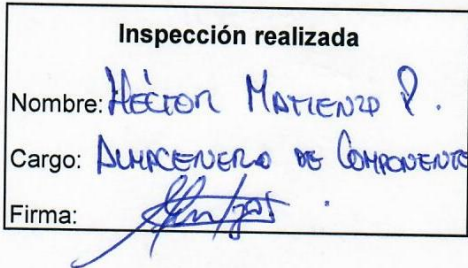 Inspección realizada
Nombre: HÉCTOR MATIENZO P.
Cargo: ALMACENERO DE COMPONENTE
Firma: